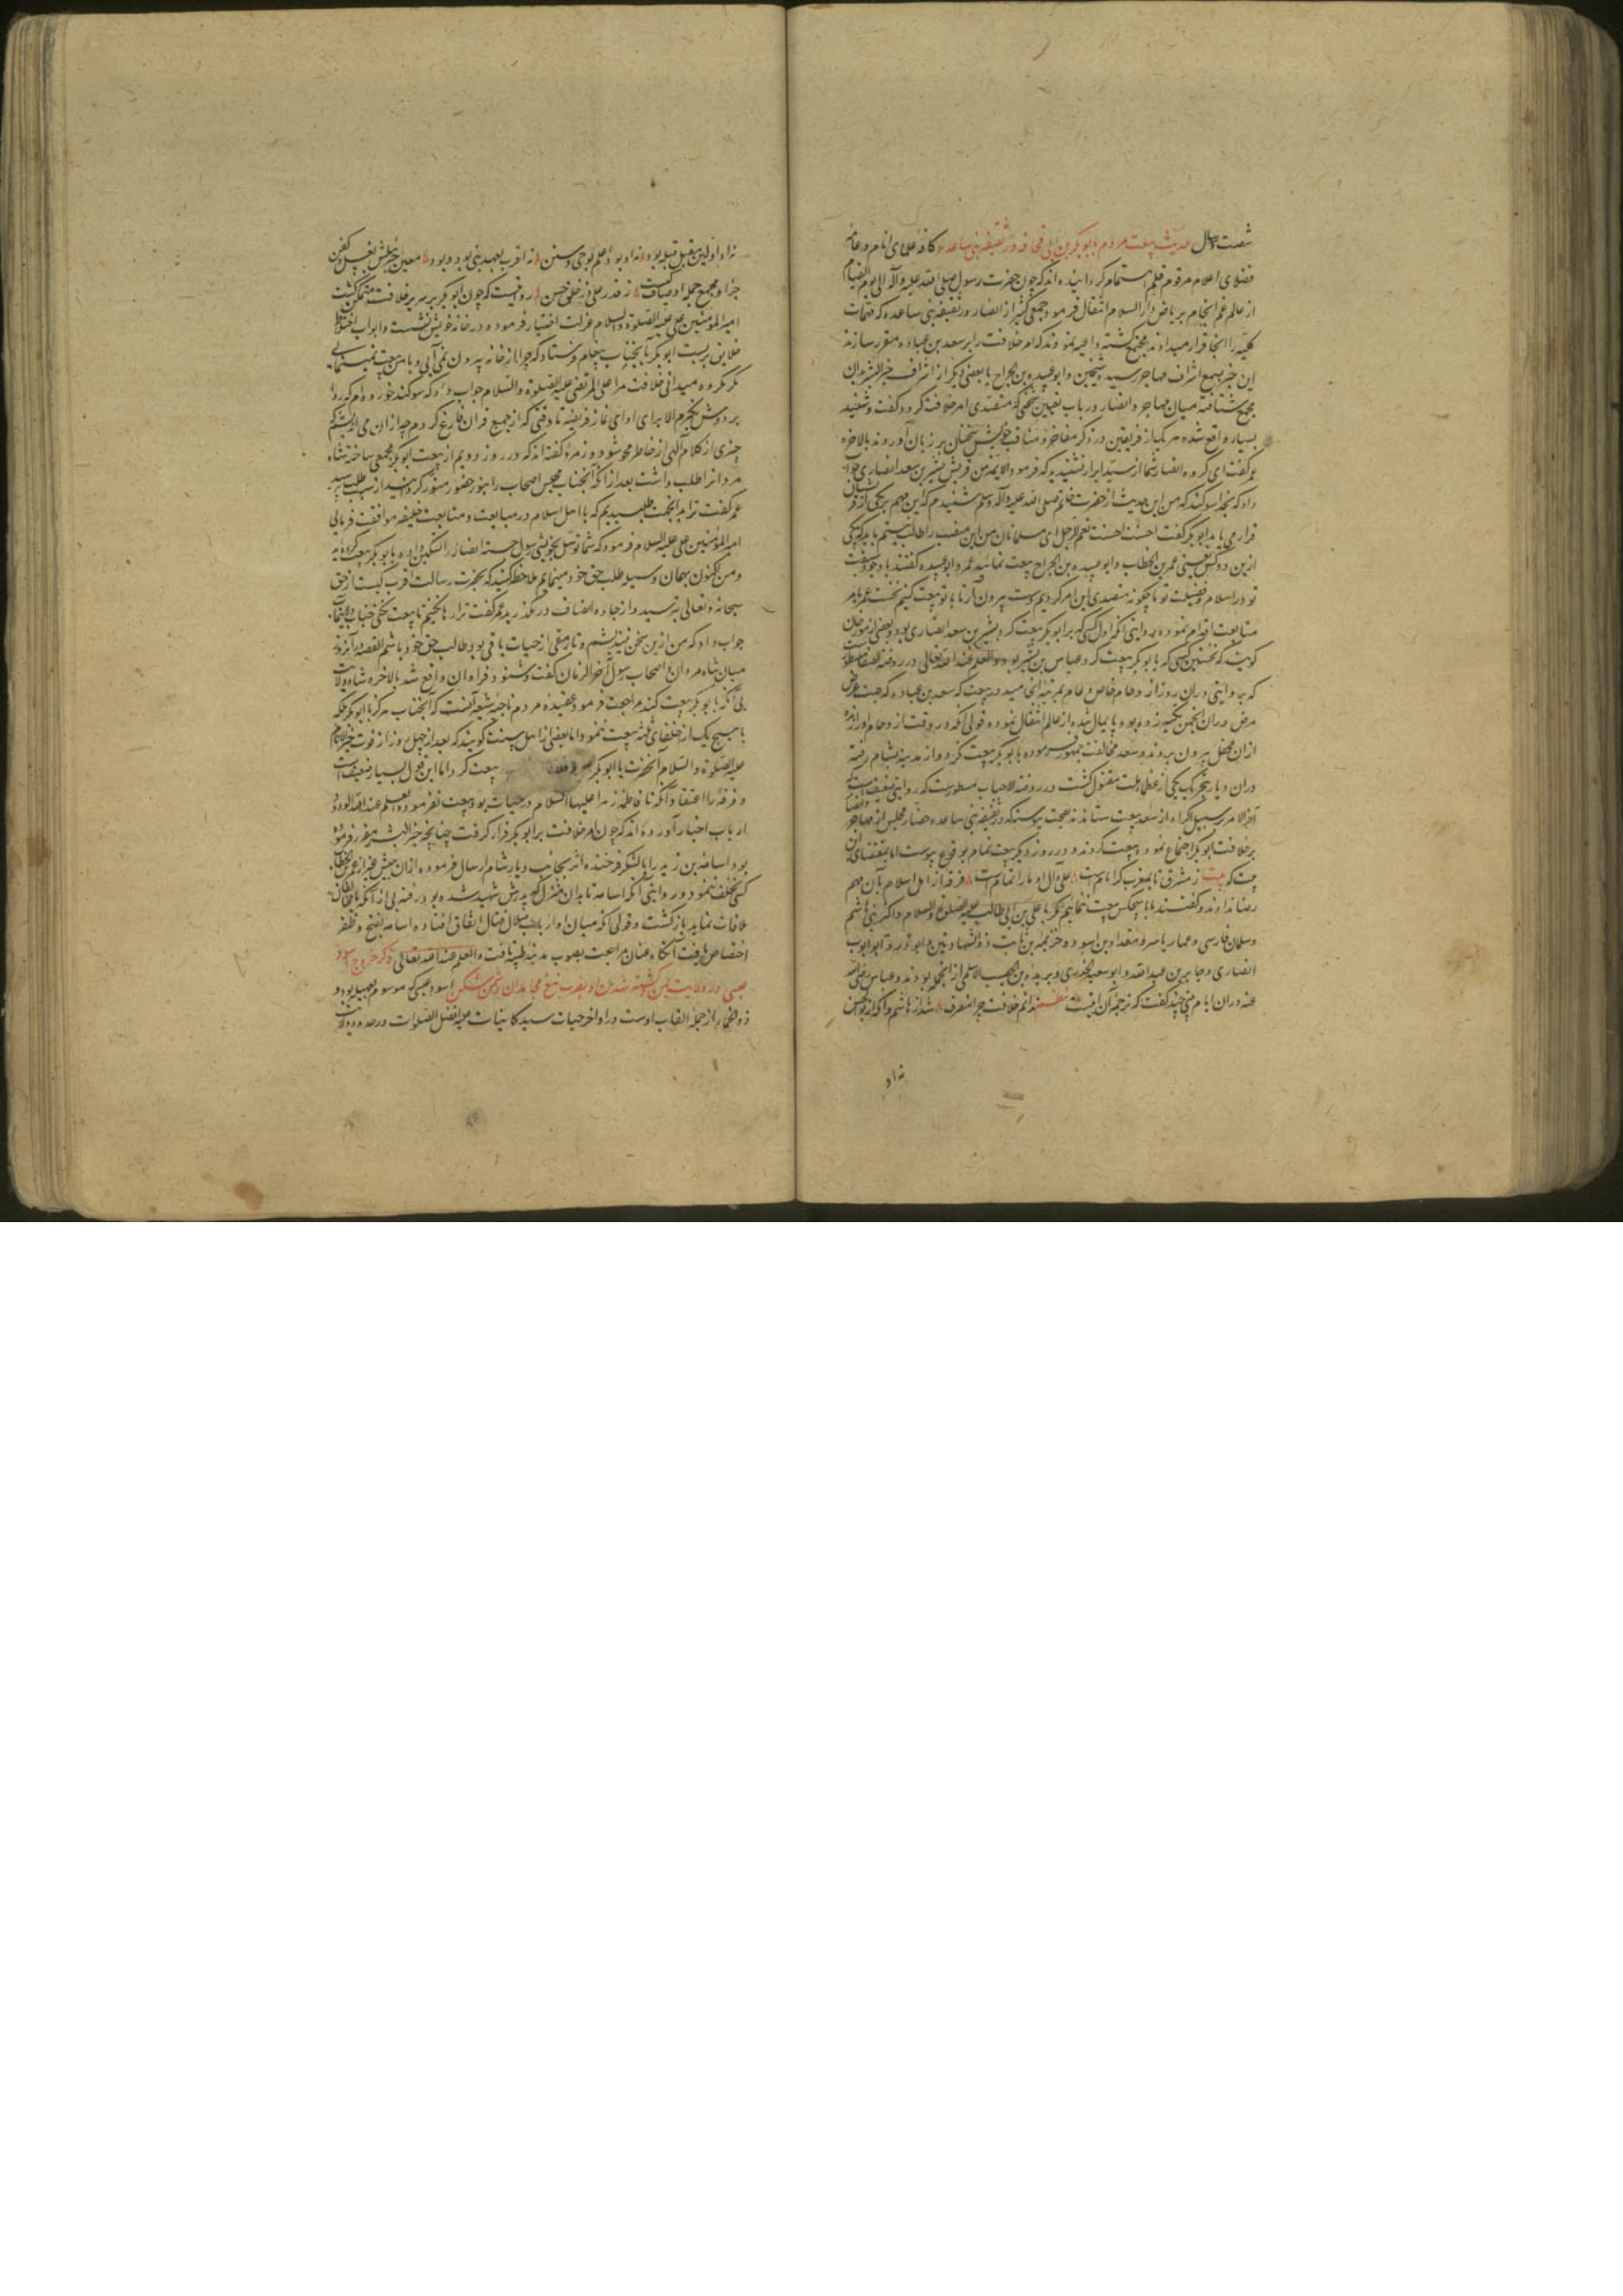 شصت و سال حدیث بیعت مردم با ابوبکر بن ابی قحافه در ثقیفه بنی ساعده کافهٔ علمای انام و عامهٔ
فضلای اعلام مرقوم قلم اهتمام گردانیده‌اند که چون حضرت رسول صلی الله علیه و آله الی یوم القیام
از عالم غم انجام بریاض دار السلام انتقال فرمود جمعی کثیر از انصار در ثقیفه بنی ساعده که مهمات
کلیه را انجا قرار میدادند مجتمع گشته داعیه نمودند که امر خلافت را بر سعد بن عباده مقرر سازند
این خبر بسمع اشراف مهاجر رسید شیخین و ابو عبیده بن الجراح با بعضی دیگر از اشراف خیر البشر بدان
مجمع شتافته میان مهاجر و انصار در باب تعیین شخصی که متقصدی امر خلافت گردد گفت و شنید
بسیار واقع شده هر یک از فریقین در ذکر مفاخر و مناقب خویش سخنان بر زبان آوردند بالاخره
عمر گفت ای گروه انصار شما از سید ابرار نشنیده که فرمود الایمه من قریش بشیر بن سعد انصاری جواب
داد که بخدا سوگند که من این حدیث از حضرت ختم صلی الله علیه و آله وسلم شنیدم که این مهم بر یکی از قریش
قرار می یابد ابوبکر گفت احسنت احسنت نعم الرجل ای مسلمانان من این منصب را طالب نیستم باید که یکی
ازین دو کس یعنی عمر بن الخطاب و ابو عبیده بن الجراح بیعت نمائید عمر و ابو عبیده گفتند با وجود سبقت
تو در اسلام و فضیلت تو ما چگونه متصدی این امر گردیم دست بیرون آر تا با تو بیعت کنیم نخست عمر بامر
متابعت اقدام نموده بروایتی انکه اول کسی که بر ابوبکر بیعت کرد بشیر بن سعد انصاری بود و بعضی از مورخان
گویند که نخستین کسی که با ابوبکر بیعت کرد عباس بن بشیر بود و العلم عند الله تعالی در روضة الصفا مسطورست
که بروایتی دران روز از وحام خاص و عام بمرتبهٔ انجامید در بیعت که سعد بن عباده که جهت عرض
مرض دران انجمن تکیه زده بود پایمال شده از عالم انتقال نمود و قولی آنکه در وقت ازدحام او را زنده
ازان محفل بیرون بردند و سعد مخالفت جمهور نموده با ابوبکر بیعت نکرد و از مدینه بشام رفته
دران دیار بتحریک یکی از عظمای ملت مقتول گشت در روضة الاحباب مسطورست که روایتی ضعیف هست که
آخر الامر بر سبیل اکراه از سعد بیعت ستاندند بصحت پیوسته که در ثقیفه بنی ساعده حضار مجلس از مهاجر و انصار
بر خلافت ابوبکر اجماع نمودند و بیعت کردند و در روز دیگر بیعت تمام بوقوع پیوست اما بمقتضای این
بیت که بیت ز مشرق تا بمغرب گر امامست علی و آل او ما را تمامست فرقه از اهل اسلام بآن مهم
رضا ندادند و گفتند ما با هیچکس بیعت ننمائیم مگر با علی بن ابی طالب علیه الصلوة والسلام و اکثر بنی هاشم
و سلمان فارسی و عمار یاسر و مقداد بن اسود و خزیمه بن ثابت ذو الشهادتین و ابوذر و ابو ایوب
انصاری و جابر بن عبدالله و ابو سعید الخدری و بریده بن الحصیب الاسلمی ازانجمله بودند و عباس رضی الله
عنه دران ایام بیتی چند گفت که ترجمهٔ آن اینست نظم ندانم خلافت چرا منصرف شد از هاشم و آنگه از بوالحسن
نه او
نه او اولین مقبل قبله بود نه او بود اعلم بوحی و سنن نه اقرب بعهد نبی بود و بود معین جبرئیلش بغسل و کفن
جز او مجمع جمله اوصاف کیست ز قدر علی و ز خلق حسن روایتست که چون ابوبکر بر سریر خلافت متمکن گشت
امیر المؤمنین علی علیه الصلوة والسلام عزلت اختیار فرموده در خانهٔ خویش نشست و ابواب اختلاط
خلایق بربست ابوبکر بآنجناب پیغام فرستاد که چرا از خانه بیرون نمی آیی و با من بیعت نمینمایی
مگر مکروه میدانی خلافت مرا علی المرتضی علیه الصلوة والسلام جواب داد که سوگند خورده‌ام که ردا
بر دوش نگیرم الا برای ادای نماز فریضه تا وقتی که از جمع قران فارغ گردم چه ازان می اندیشم که
چیزی از کلام آلهی از خاطر محو شود و زمرهٔ گفته‌اند که در روز دویم از بیعت ابوبکر مجمعی ساخته شاه
مردانرا طلب داشت بعد از آنکه آنجناب مجلس اصحاب را بنور حضور منور گردانید از سبب طلب پرسید
عمر گفت ترا بدانجهت طلبیدیم که با اهل اسلام در مبایعت و متابعت خلیفه موافقت فرمائی
امیر المؤمنین علی علیه السلام فرمود که شما توسل بخویشی رسول جسته انصار را تسکین داده با ابوبکر بیعت کرده‌اید
و من اکنون بهمان وسیله طلب حق خود مینمایم ملاحظه کنید که بحضرت رسالت اقرب کیست از حق
سبحانه و تعالی بترسید و از جادهٔ انصاف در مگذرید عمر گفت ترا رها نکنیم تا بیعت نکنی جناب ولایتمآب
جواب داد که من ازین سخن نیندیشم و تا رمقی از حیات باقی بود طالب حق خود باشم القصه درآنروز
میان شاه مردان و اصحاب رسول آخر الزمان گفت و شنود فراوان واقع شد بالاخره شاه ولایت
بی آنکه با ابوبکر بیعت کند مراجعت فرمود عقیدهٔ مردم ناجیه شیعه آنست که آنجناب هرگز با ابوبکر بلکه
با هیچ یک از خلفای ثلثه بیعت ننمود و اما بعضی از اهل سنت گویند که بعد از چهل روز از فوت خیر الانام
علیه الصلوة والسلام آنحضرت با ابوبکر بیعت کرد اما این قول بسیار ضعیف است
و فرقهٔ را اعتقاد آنکه تا فاطمه زهرا علیها السلام در حیات بود بیعت نفرمود و العلم عند الله الودود
ارباب اخبار آورده‌اند که چون امر خلافت بر ابوبکر قرار گرفت چنانچه خیر البشر مقرر فرموده
بود اسامه بن زید را با لشکر فرخنده اثر بجانب دیار شام ارسال فرموده ازان جیش غیر از عمر بن الخطاب
کسی تخلف ننمود و روایتی آنکه اسامه تا بدان منزل که پدرش شهید شده بود رفته بی از آنکه با مخالفان
ملاقات نماید بازگشت و قولی آنکه میان او و ارباب ضلال قتال اتفاق افتاده اسامه بفتح و ظفر
اختصاص یافت آنگاه عنان مراجعت بصوب مدینه طیبه تافت و العلم عند الله تعالی ذکر خروج اسود
عنسی در ولایت یمن و کشته شدن او بضرب تیغ مجاهدان دشمن شکن اسود عنسی که موسوم بعیهله بود و
ذو الخمار از جمله القاب اوست در اواخر حیات سید کاینات علیه افضل الصلوات در حدود ولایت